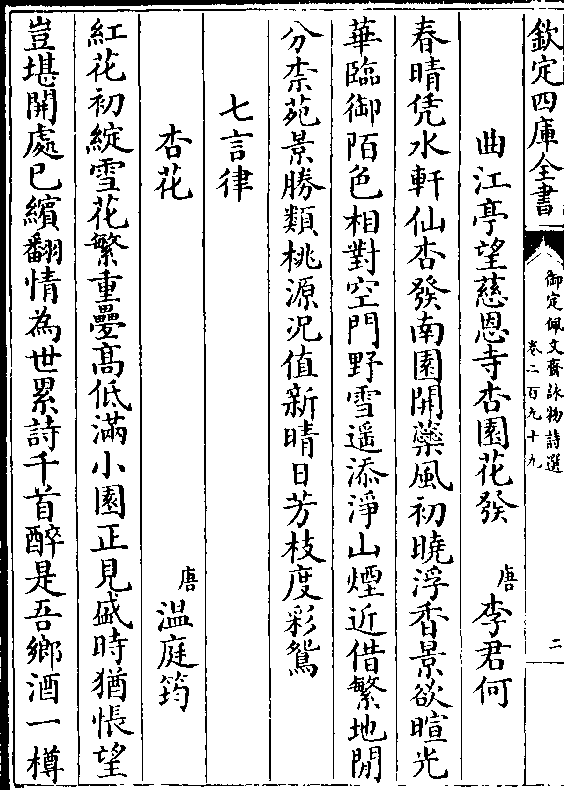 欽定四庫全書
御定佩文齋詠物詩選
卷二百九十九
二
曲江亭望慈恩寺杏園花發
唐 李君何
春晴凭水軒仙杏發南園開蘂風初曉浮香景欲暄光
華臨御陌色相對空門野雪遥添淨山煙近借繁地閒
分柰苑景勝類桃源况值新晴日芳枝度彩鴛
七言律
杏花
唐 温庭筠
紅花初綻雪花繁重疊髙低滿小園正見盛時猶悵望
豈堪開處已繽翻情為世累詩千首醉是吾鄉酒一樽